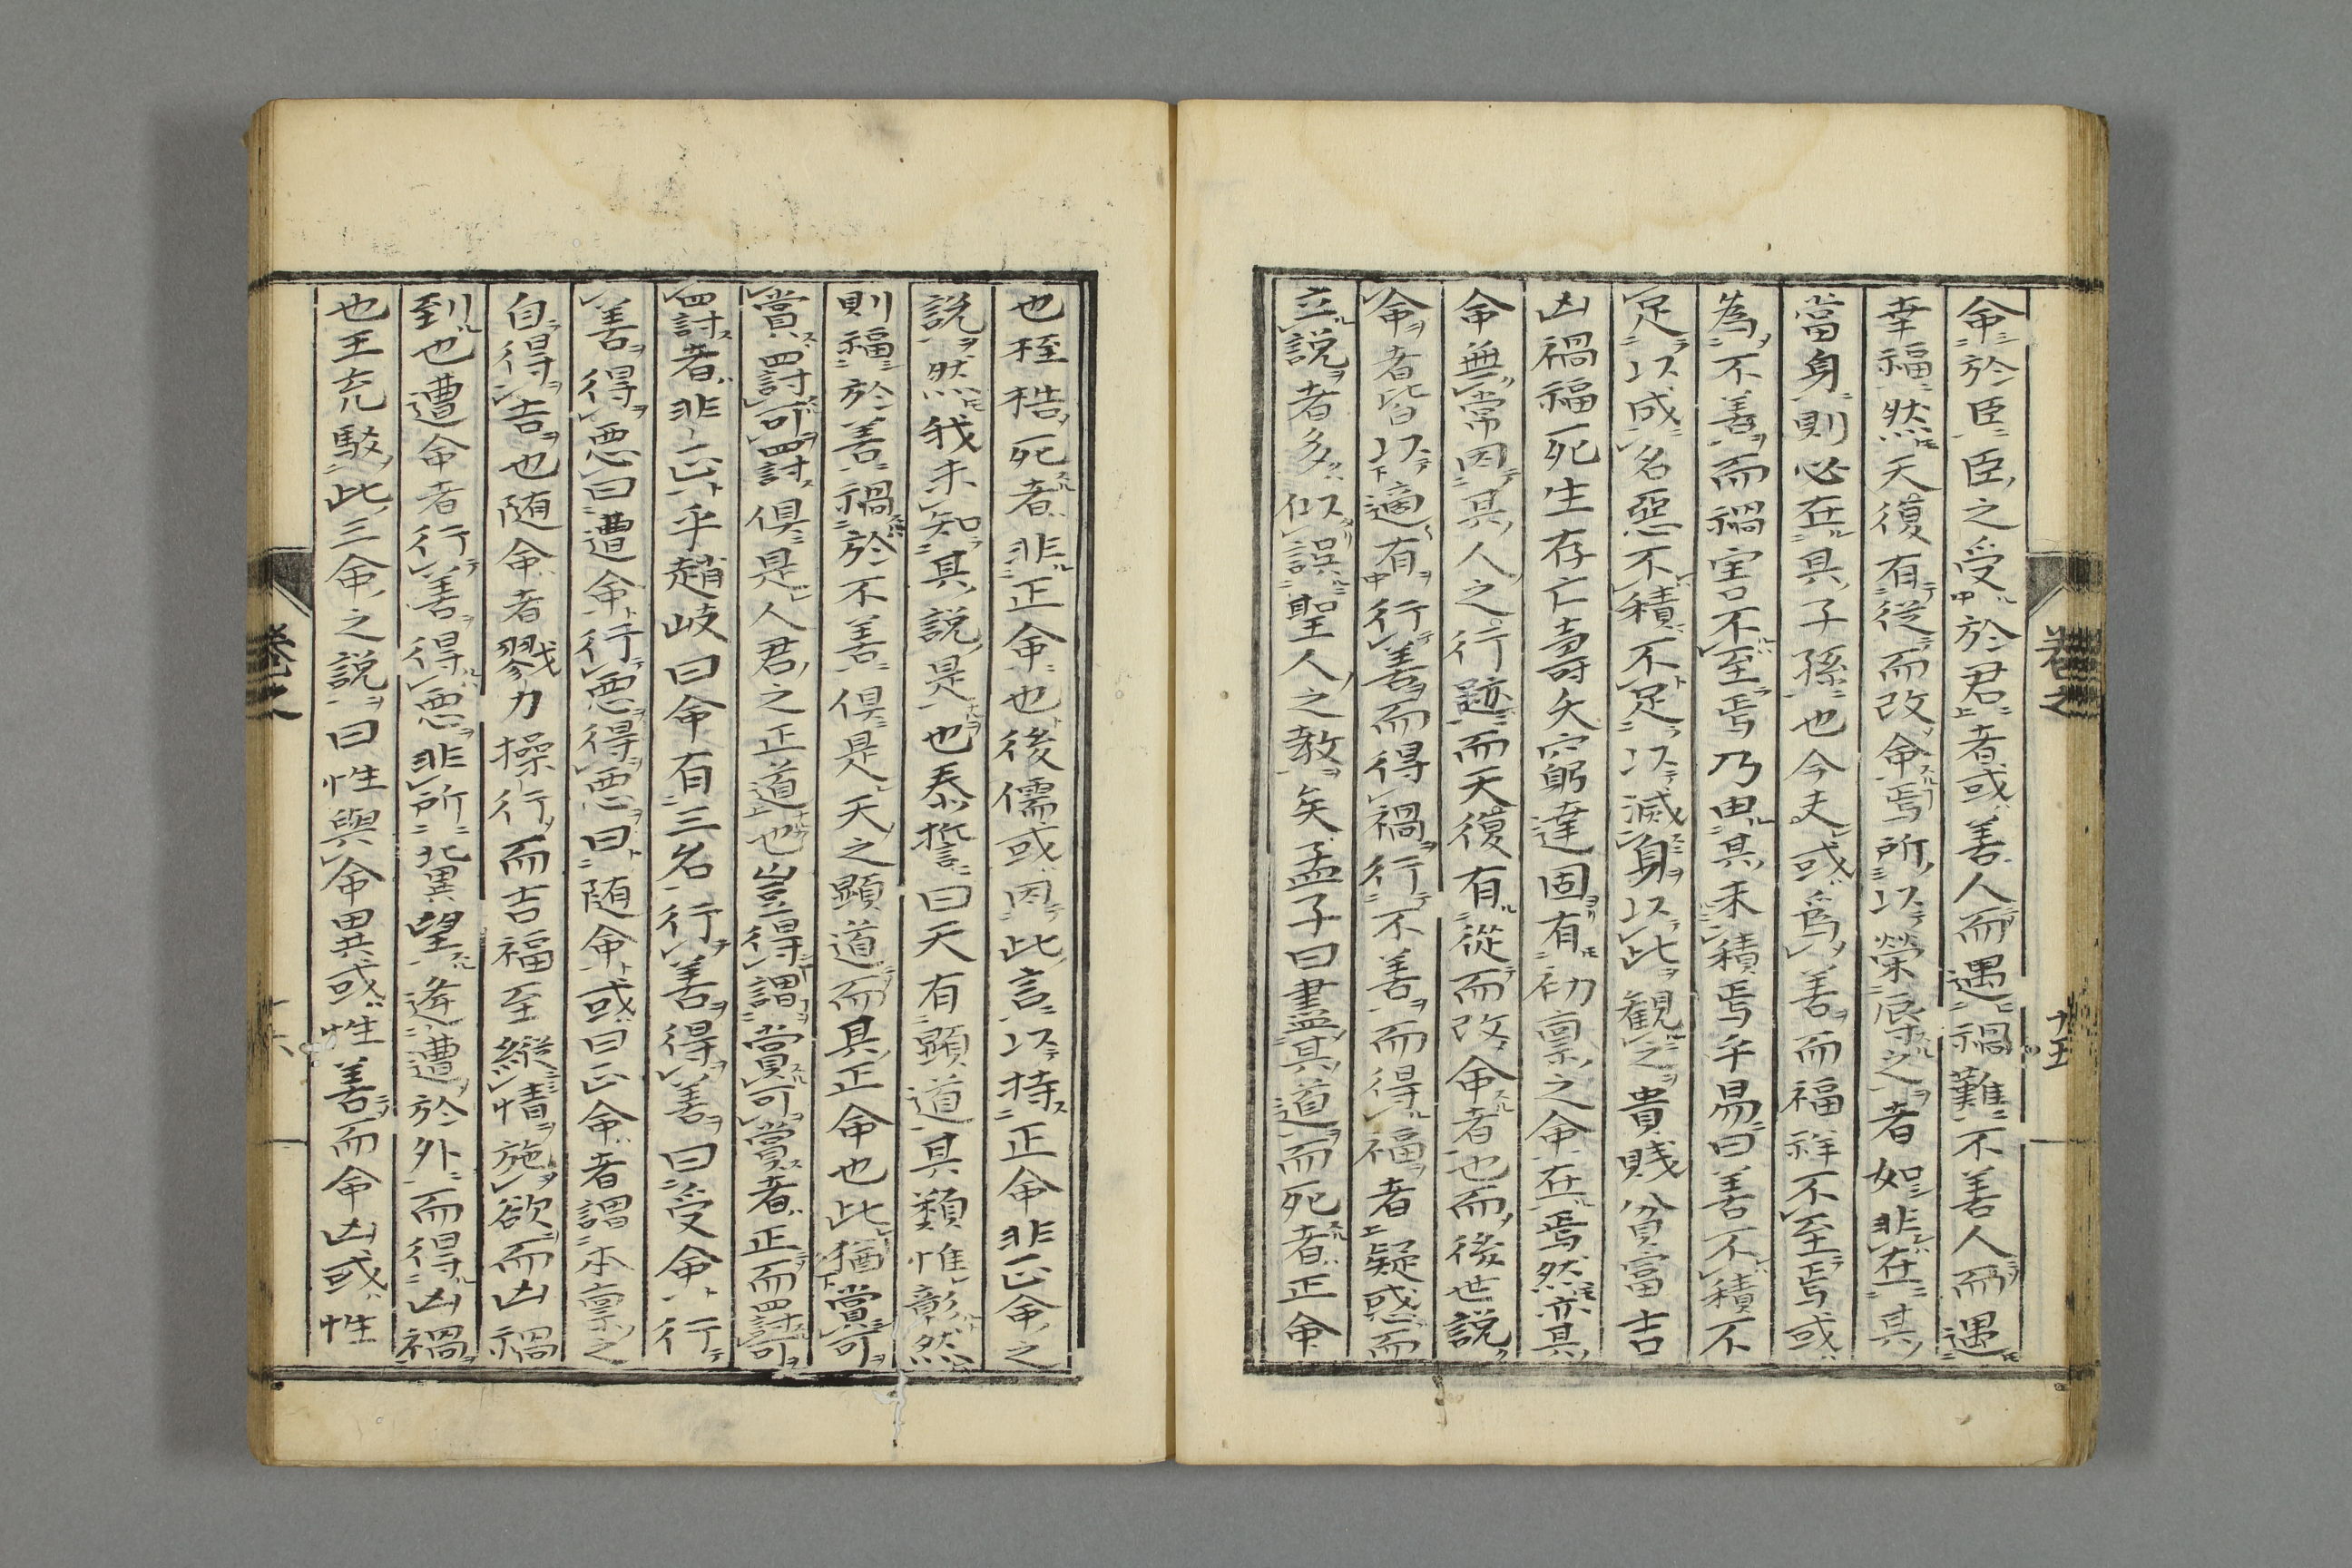 命於臣臣之受於君者或善人而遇禍難不善人而遇
幸福然天復有從而改命焉所以榮辱之者如非在其
當身則必在其子孫也今夫或爲善而福祥不至焉或
為不善而禍害不至焉乃由其未積焉乎易曰善不積不
足以成名惡不積不足以滅身以此観之貴賎貧富吉
凶禍福死生存亡壽夭窮達固有初禀之命在焉然亦其
命無常因其人之行跡而天復有從而改命者也而後世說
命者皆以適有行善而得禍行不善而得福者疑惑而
立説者多似誤聖人之教矣孟子曰盡其道而死者正命
也桎梏死者非正命也後儒或因此言以持正命非正命之
説然我未知其説是也泰誓曰天有顕道其類惟彰然
則福於善禍於不善俱是天之顕道而其正命也此猶賞可
賞罰可罰俱是人君之正道也豈得謂賞可賞者正而罰可
罰者非正乎趙岐曰命有三名行善得善曰受命行
善得悪曰遭命行悪得悪曰随命或曰正命者謂本禀之
自得吉也随命者戮力操行而吉福至縱情施欲而凶禍
到也遭命者行善得悪非所冀望逢遭於外而得凶禍
也王充駁此三命之説曰性與命異或性善而命凶或性
卷之
十五
卷之
十六